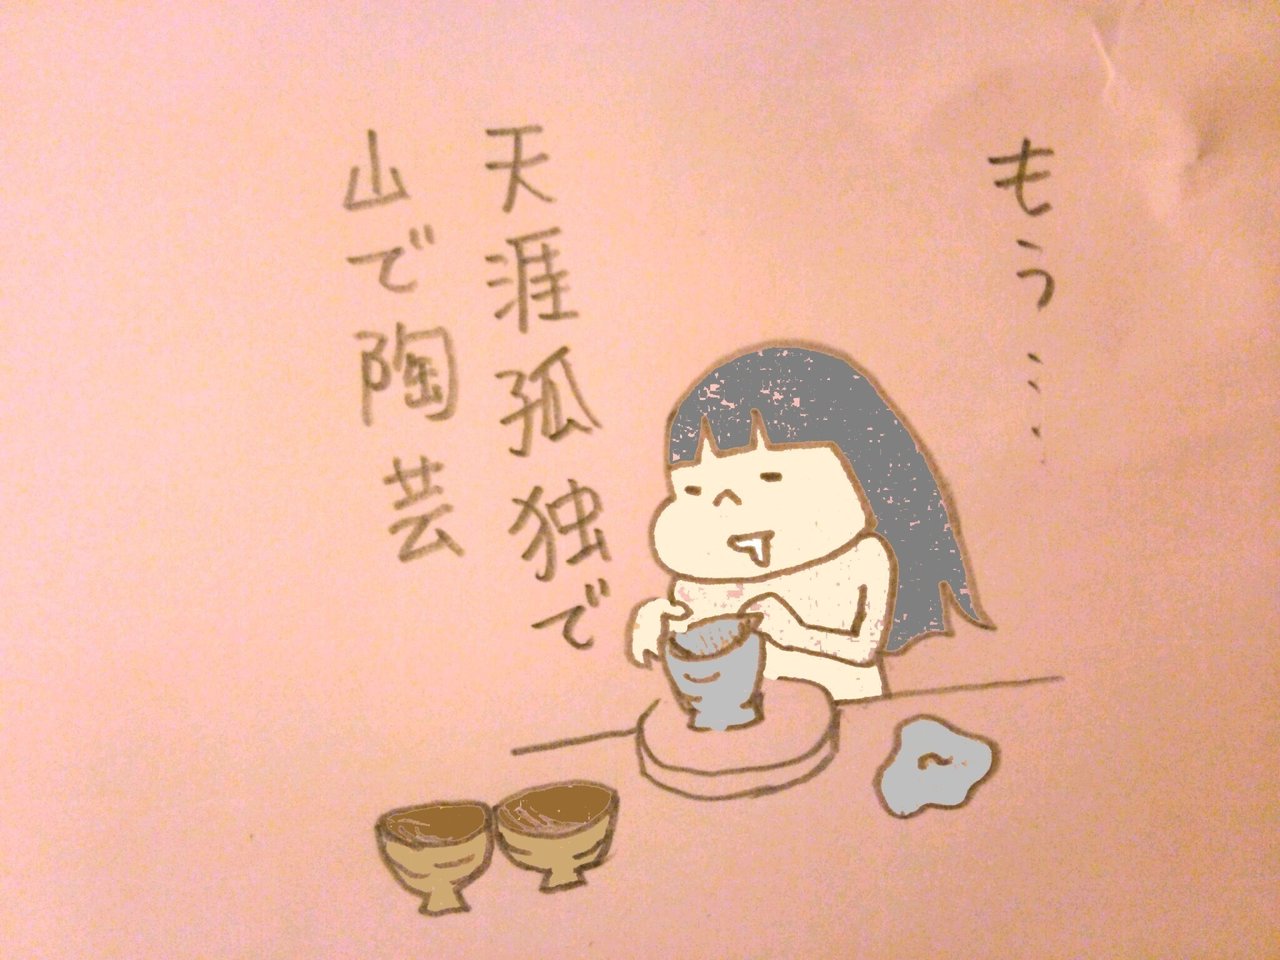 もう…
天涯孤独で
山で陶芸